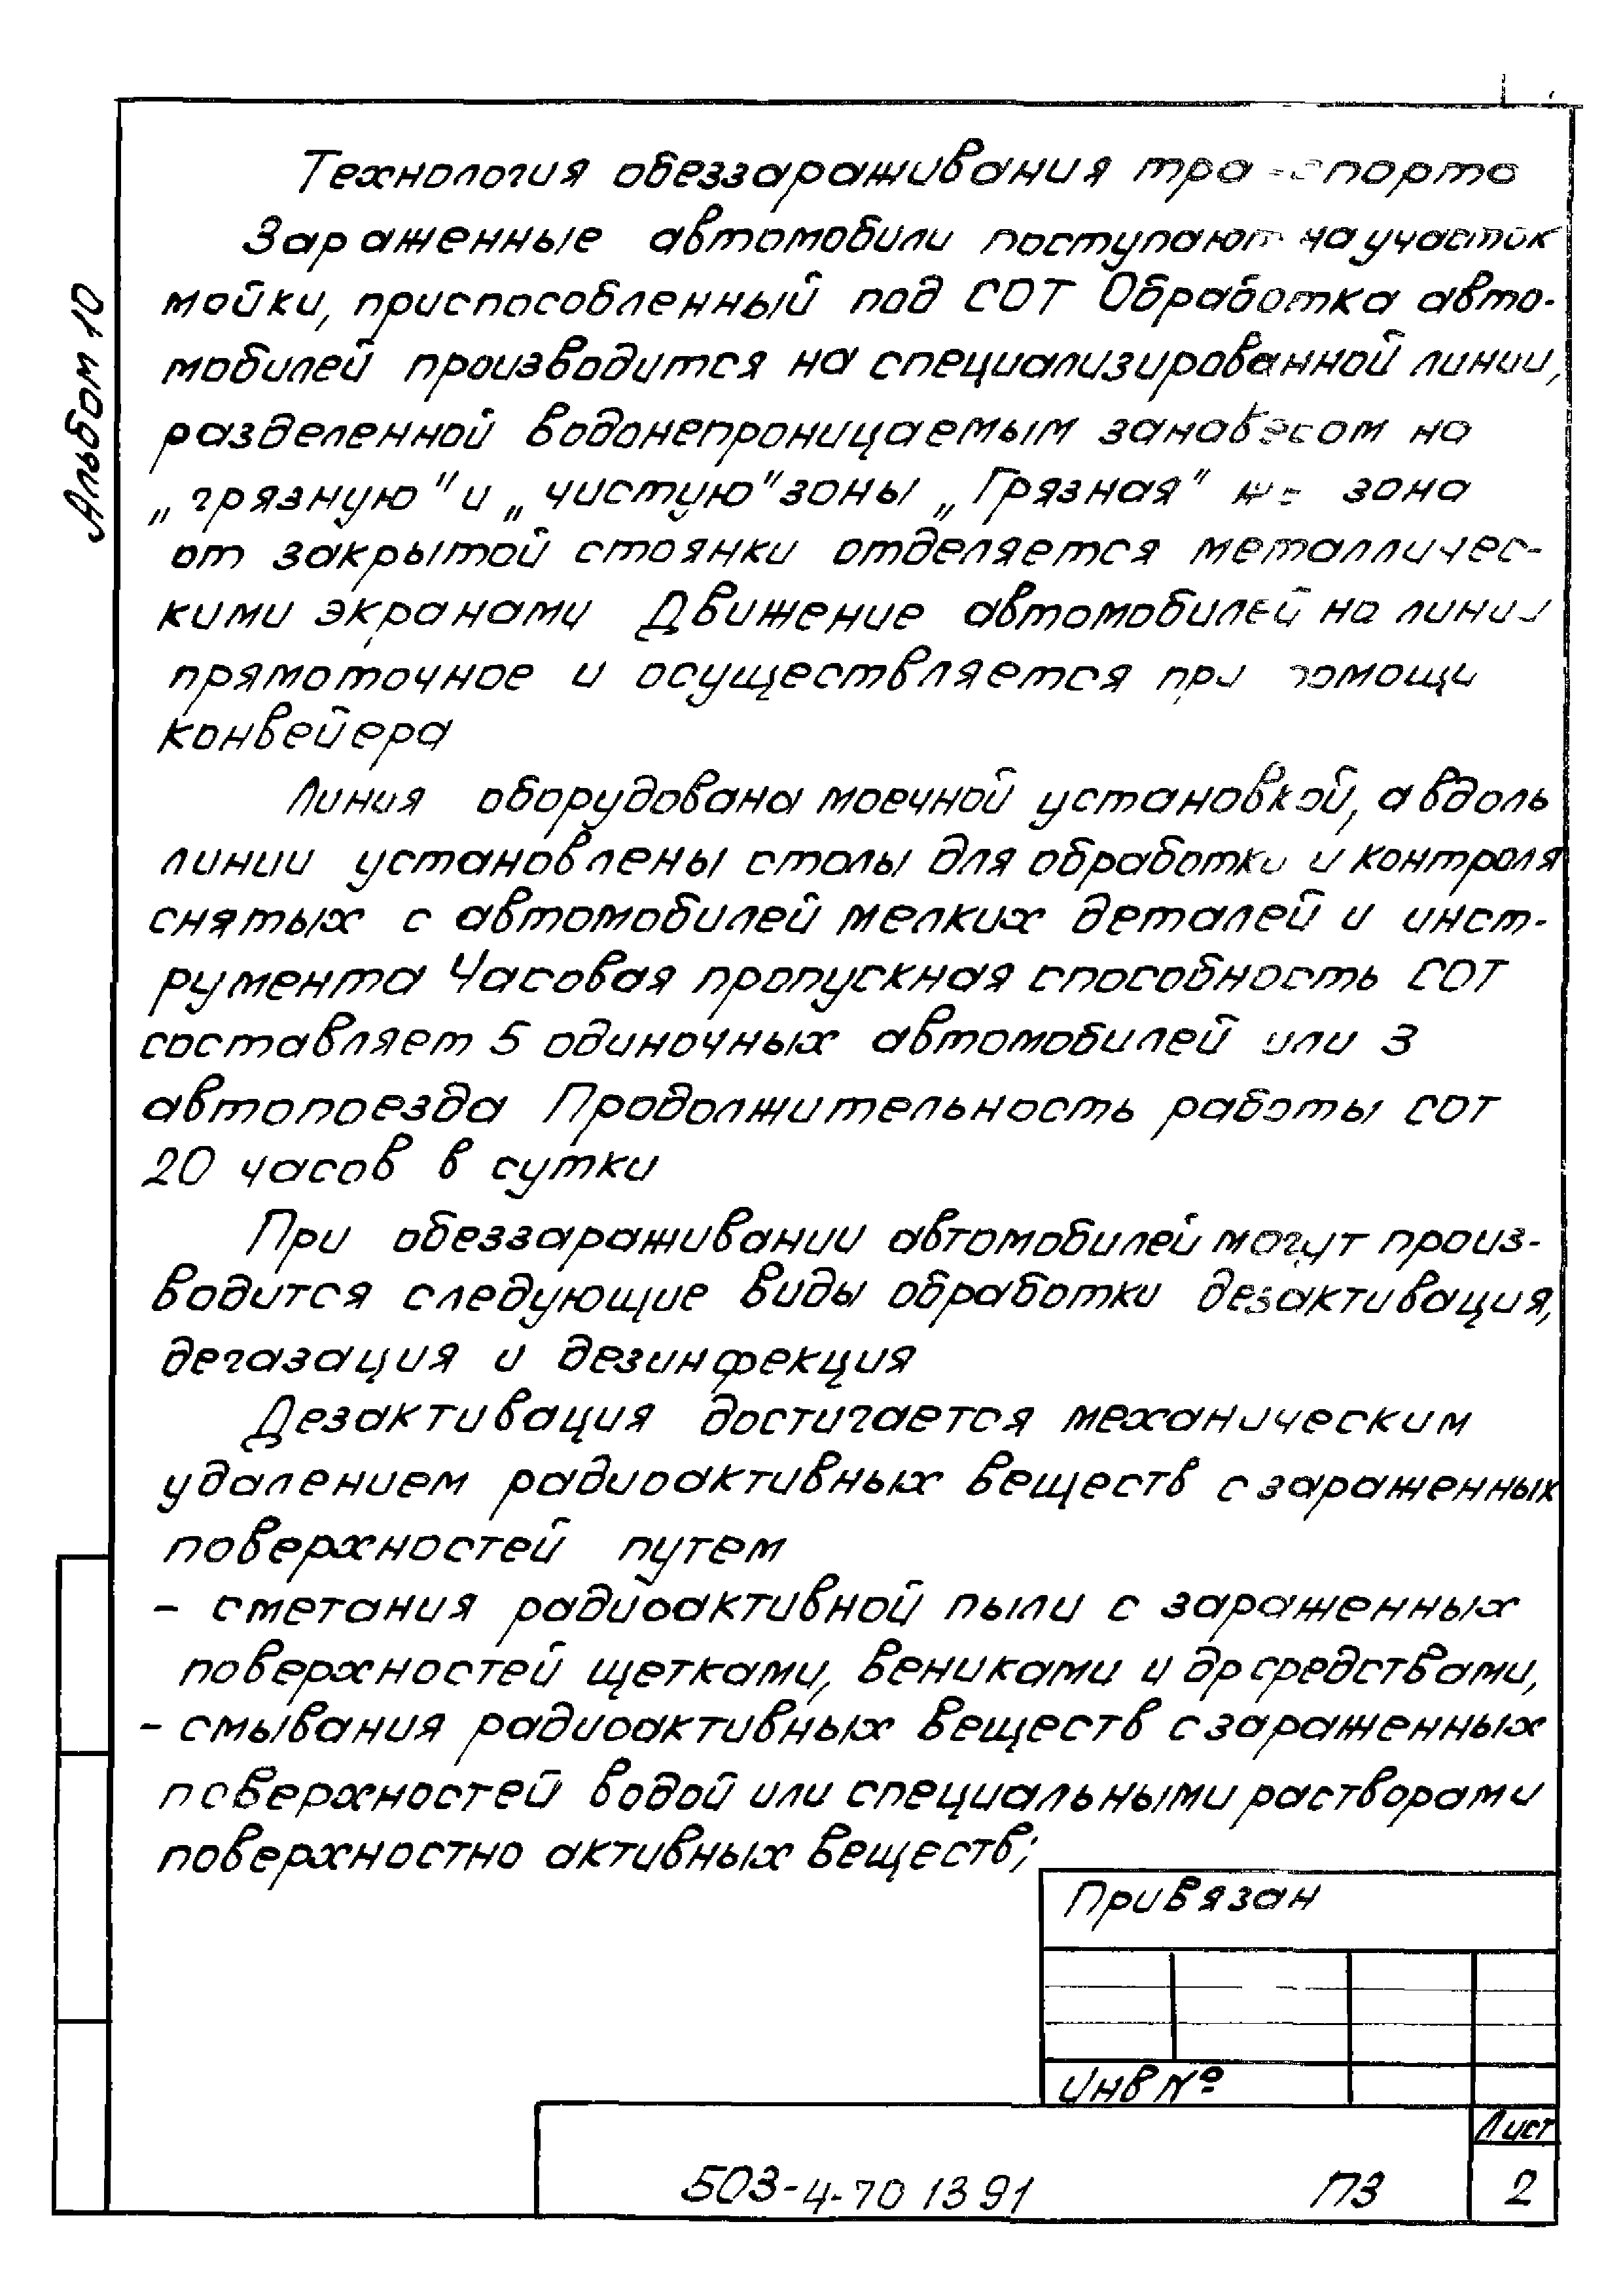 Альбом 10
Технология обеззараживания транспорта
Зараженные автомобили поступают на участок
мойки, приспособленный под СОТ Обработка авто-
мобилей производится на специализированной линии,
разделенной водонепроницаемым занавесом на
„грязную" и „чистую" зоны „Грязная" же зона
от закрытой стоянки отделяется металличес-
кими экранами Движение автомобилей на линии
прямоточное и осуществляется при помощи
конвейера
Линия оборудована моечной установкой, а вдоль
линии установлены столы для обработки и контроля
снятых с автомобилей мелких деталей и инст-
румента Часовая пропускная способность СОТ
составляет 5 одиночных автомобилей или 3
автопоезда Продолжительность работы СОТ
20 часов в сутки
При обеззараживании автомобилей могут произ-
водится следующие виды обработки дезактивация,
дегазация и дезинфекция
Дезактивация достигается механическим
удалением радиоактивных веществ с зараженных
поверхностей путем
- сметания радиоактивной пыли с зараженных
поверхностей щетками, вениками и др средствами,
- смывания радиоактивных веществ с зараженных
поверхностей водой или специальными растворами
поверхностно активных веществ;
Привязан
Инв №
Лист
503-4-70 13 91 ПЗ 2